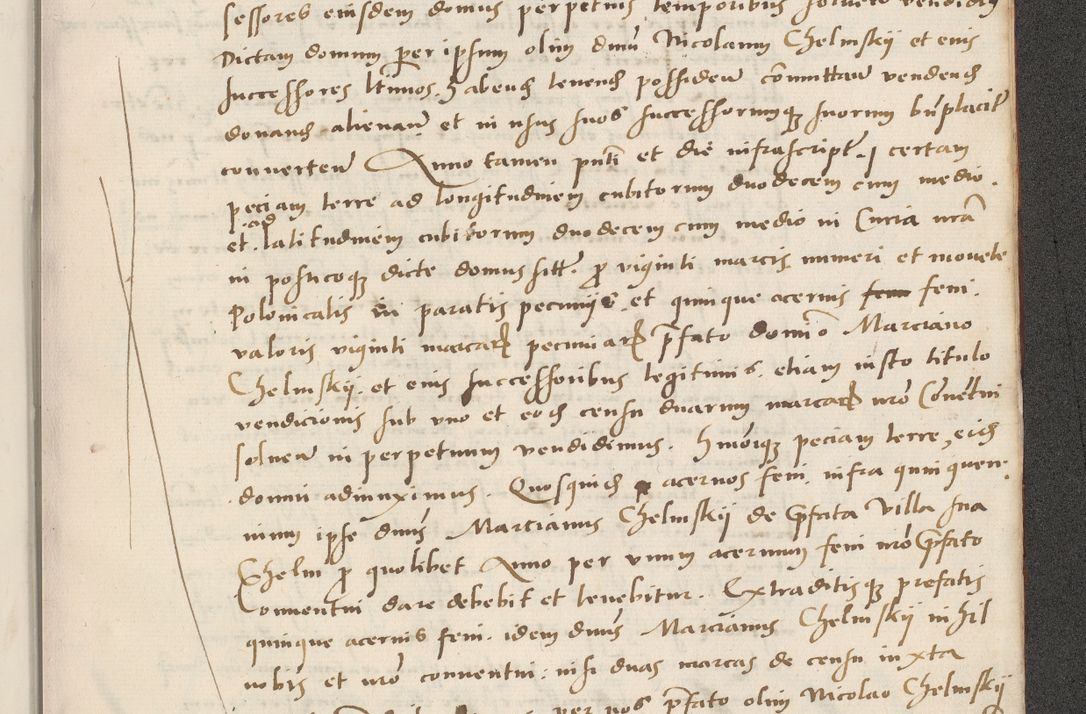 sessores eiusdem domus perpetuis temporibus solvere vendidit
Dictam domum per ipsum olim dnum Nicolaum Chelmskij et eius
successores ltimos. Habend tenend possidend commutand vendend
donand alienand et in usus suos successorumq suorum bnplacit
convertend Anno tamen pnti et die infrascript. certam
peciam terre ad longitudinem cubitorum duodecem cum medio.
et. ad latitudinem cubitorum duodecem cum medio in Curia nra
in posticoq dicte domus sitt. p viginti marcis numeri et monete
Polonicalis in paratis pecuniis. et quinque acervis feni.
valoris viginti marcar pecuniar pfato domino Marciano
Chelmskij. et eius successoribus legitimis. etiam iusto titulo
vendicionis sub uno et eod censu duarum marcar nro Conventui
solvend in perpetuum vendidimus. Hmoiq peciam terre, eid
domui adiunximus. Quosquid acervos feni. infra quinquen.
nium ipse dnus Marcianus Chelmskij de Pfata Villa sua
Chelm p quolibet Anno per unum acervum feni nro Pfato
Conventui dare debebit et tenebitur. Extraditisq prefatis
quinque acervis feni. idem dnus Marcianus Chelmskij nihil
nobis et nro conventui. nisi duas marcas de censu iuxta
per nos pfato olim Nicolao Chelmskij